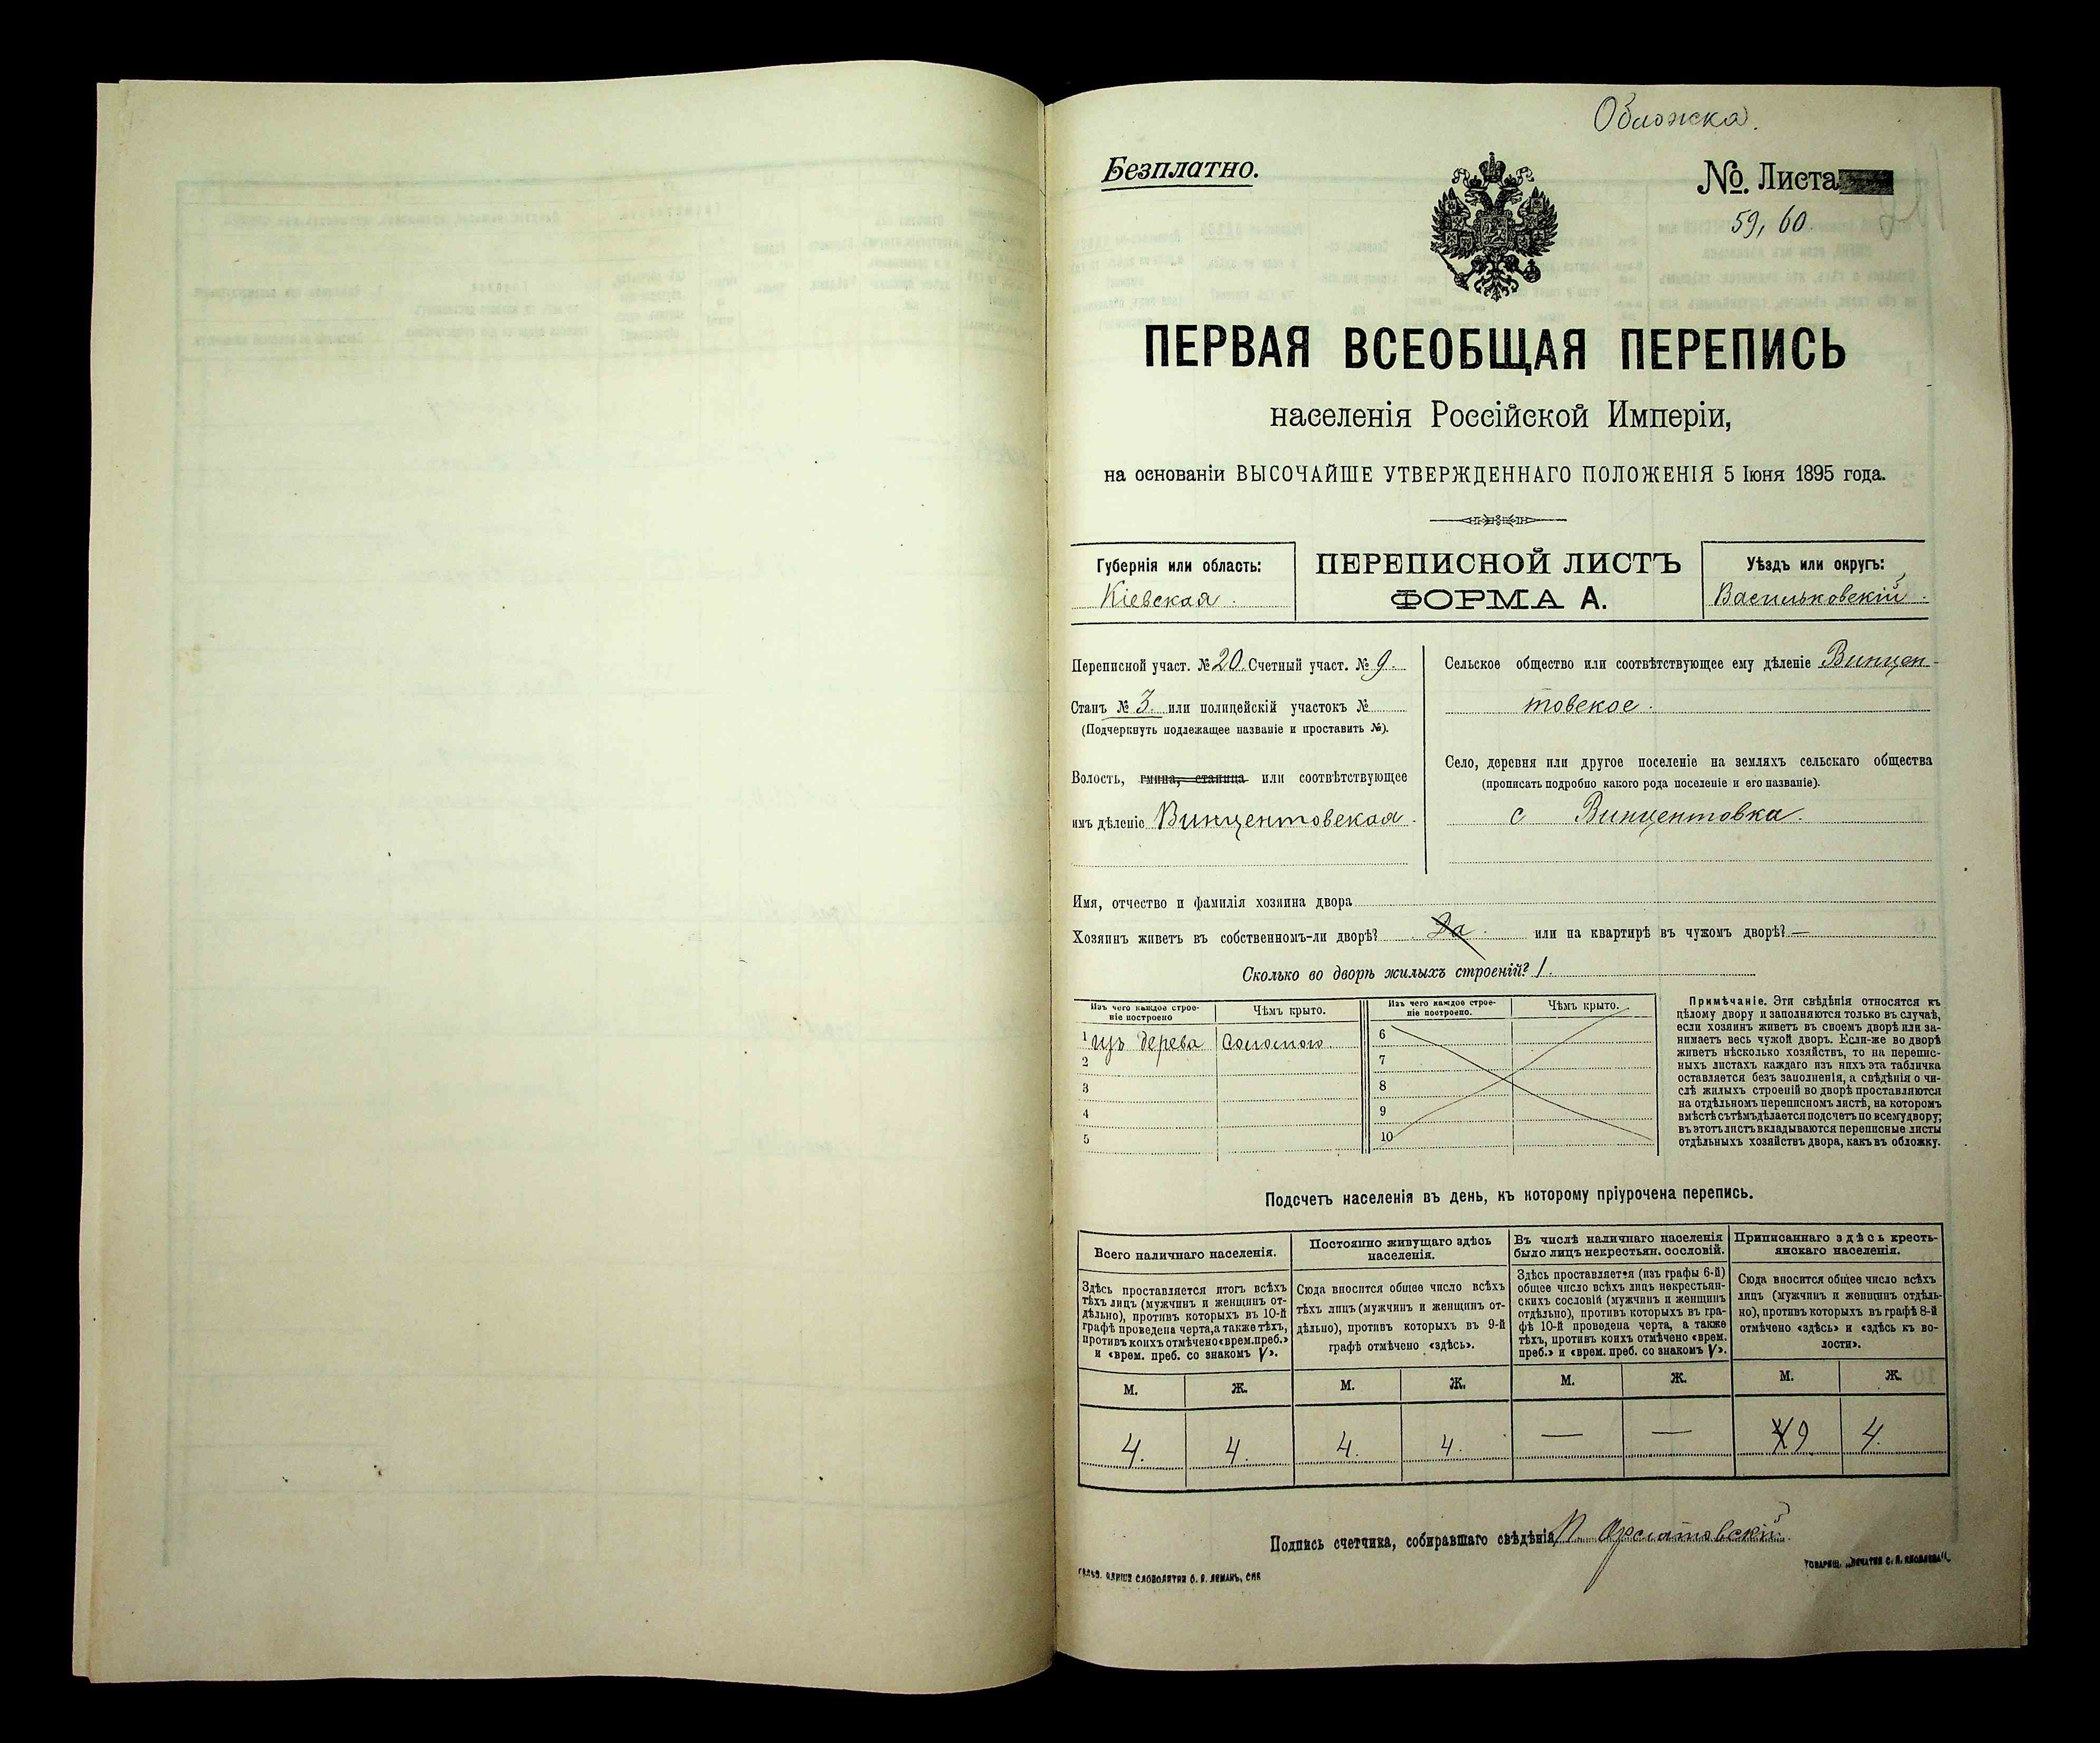 Обложка.
Безплатно.
№. Листа
59, 60
ПЕРВАЯ ВСЕОБЩАЯ ПЕРЕПИСЬ
населенія Россійской Имперіи,
на основаніи ВЫСОЧАЙШЕ УТВЕРЖДЕННАГО ПОЛОЖЕНІЯ 5 Іюня 1895 года.
Губернія или область:
Кіевская.
ПЕРЕПИСНОЙ ЛИСТЪ
ФОРМА А.
Уѣздъ или округъ:
Васильковскій.
Переписной участ. № 20. Счетный участ. № 9.
Станъ № 3. или полицейскій участокъ №
(Подчеркнуть подлежащее названіе и проставить №).
Волость, гмина, станица или соотвѣтствующее
имъ дѣленіе Винцентовская.
Сельское общество или соотвѣтствующее ему дѣленіе Винцен-
товское.
Село, деревня или другое поселеніе на земляхъ сельскаго общества
(прописать подробно какого рода поселеніе и его названіе).
с Винцентовка.
Имя, отчество и фамилія хозяина двора
Хозяинъ живетъ въ собственномъ-ли дворѣ? Да. или на квартирѣ въ чужомъ дворѣ? —
Сколько во дворѣ жилыхъ строеній? 1.
Изъ чего каждое строе-
ніе построено
Чѣмъ крыто.
1 изъ дерева Соломою.
2
3
4
5
Изъ чего каждое строе-
ніе построено.
Чѣмъ крыто.
6
7
8
9
10
Примѣчаніе. Эти свѣдѣнія относятся къ
цѣлому двору и заполняются только въ случаѣ,
если хозяинъ живетъ въ своемъ дворѣ или за-
нимаетъ весь чужой дворъ. Если-же во дворѣ
живетъ нѣсколько хозяйствъ, то на перепис-
ныхъ листахъ каждаго изъ нихъ эта табличка
оставляется безъ заполненія, а свѣдѣнія о чи-
слѣ жилыхъ строеній во дворѣ проставляются
на отдѣльномъ переписномъ листѣ, на которомъ
вмѣстѣ съ тѣмъ дѣлается подсчетъ по всему двору;
въ этотъ листъ вкладываются переписные листы
отдѣльныхъ хозяйствъ двора, какъ въ обложку.
Подсчетъ населенія въ день, къ которому пріурочена перепись.
Всего наличнаго населенія.
Здѣсь проставляется итогъ всѣхъ
тѣхъ лицъ (мужчинъ и женщинъ от-
дѣльно), противъ которыхъ въ 10-й
графѣ проведена черта, а также тѣхъ,
противъ коихъ отмѣчено «врем. преб.»
и «врем. преб. со знакомъ V».
Постоянно живущаго здѣсь
населенія.
Сюда вносится общее число всѣхъ
тѣхъ лицъ (мужчинъ и женщинъ от-
дѣльно), противъ которыхъ въ 9-й
графѣ отмѣчено «здѣсь».
Въ числѣ наличнаго населенія
было лицъ некрестьян. сословій.
Здѣсь проставляется (изъ графы 6-й)
общее число всѣхъ лицъ некрестьян-
скихъ сословій (мужчинъ и женщинъ
отдѣльно), противъ которыхъ въ гра-
фѣ 10-й проведена черта, а также
тѣхъ, противъ коихъ отмѣчено «врем.
преб.» и «врем. преб. со знакомъ V».
Приписаннаго здѣсь кресть-
янскаго населенія.
Сюда вносится общее число всѣхъ
лицъ (мужчинъ и женщинъ отдѣль-
но), противъ которыхъ въ графѣ 8-й
отмѣчено «здѣсь» и «здѣсь къ во-
лости».
М. Ж. М. Ж. М. Ж. М. Ж.
4. 4. 4. 4. — — 9 4.
Подпись счетчика, собиравшаго свѣдѣнія
ТОВАРИЩ. „ПЕЧАТНЯ С. П. ЯКОВЛЕВА".